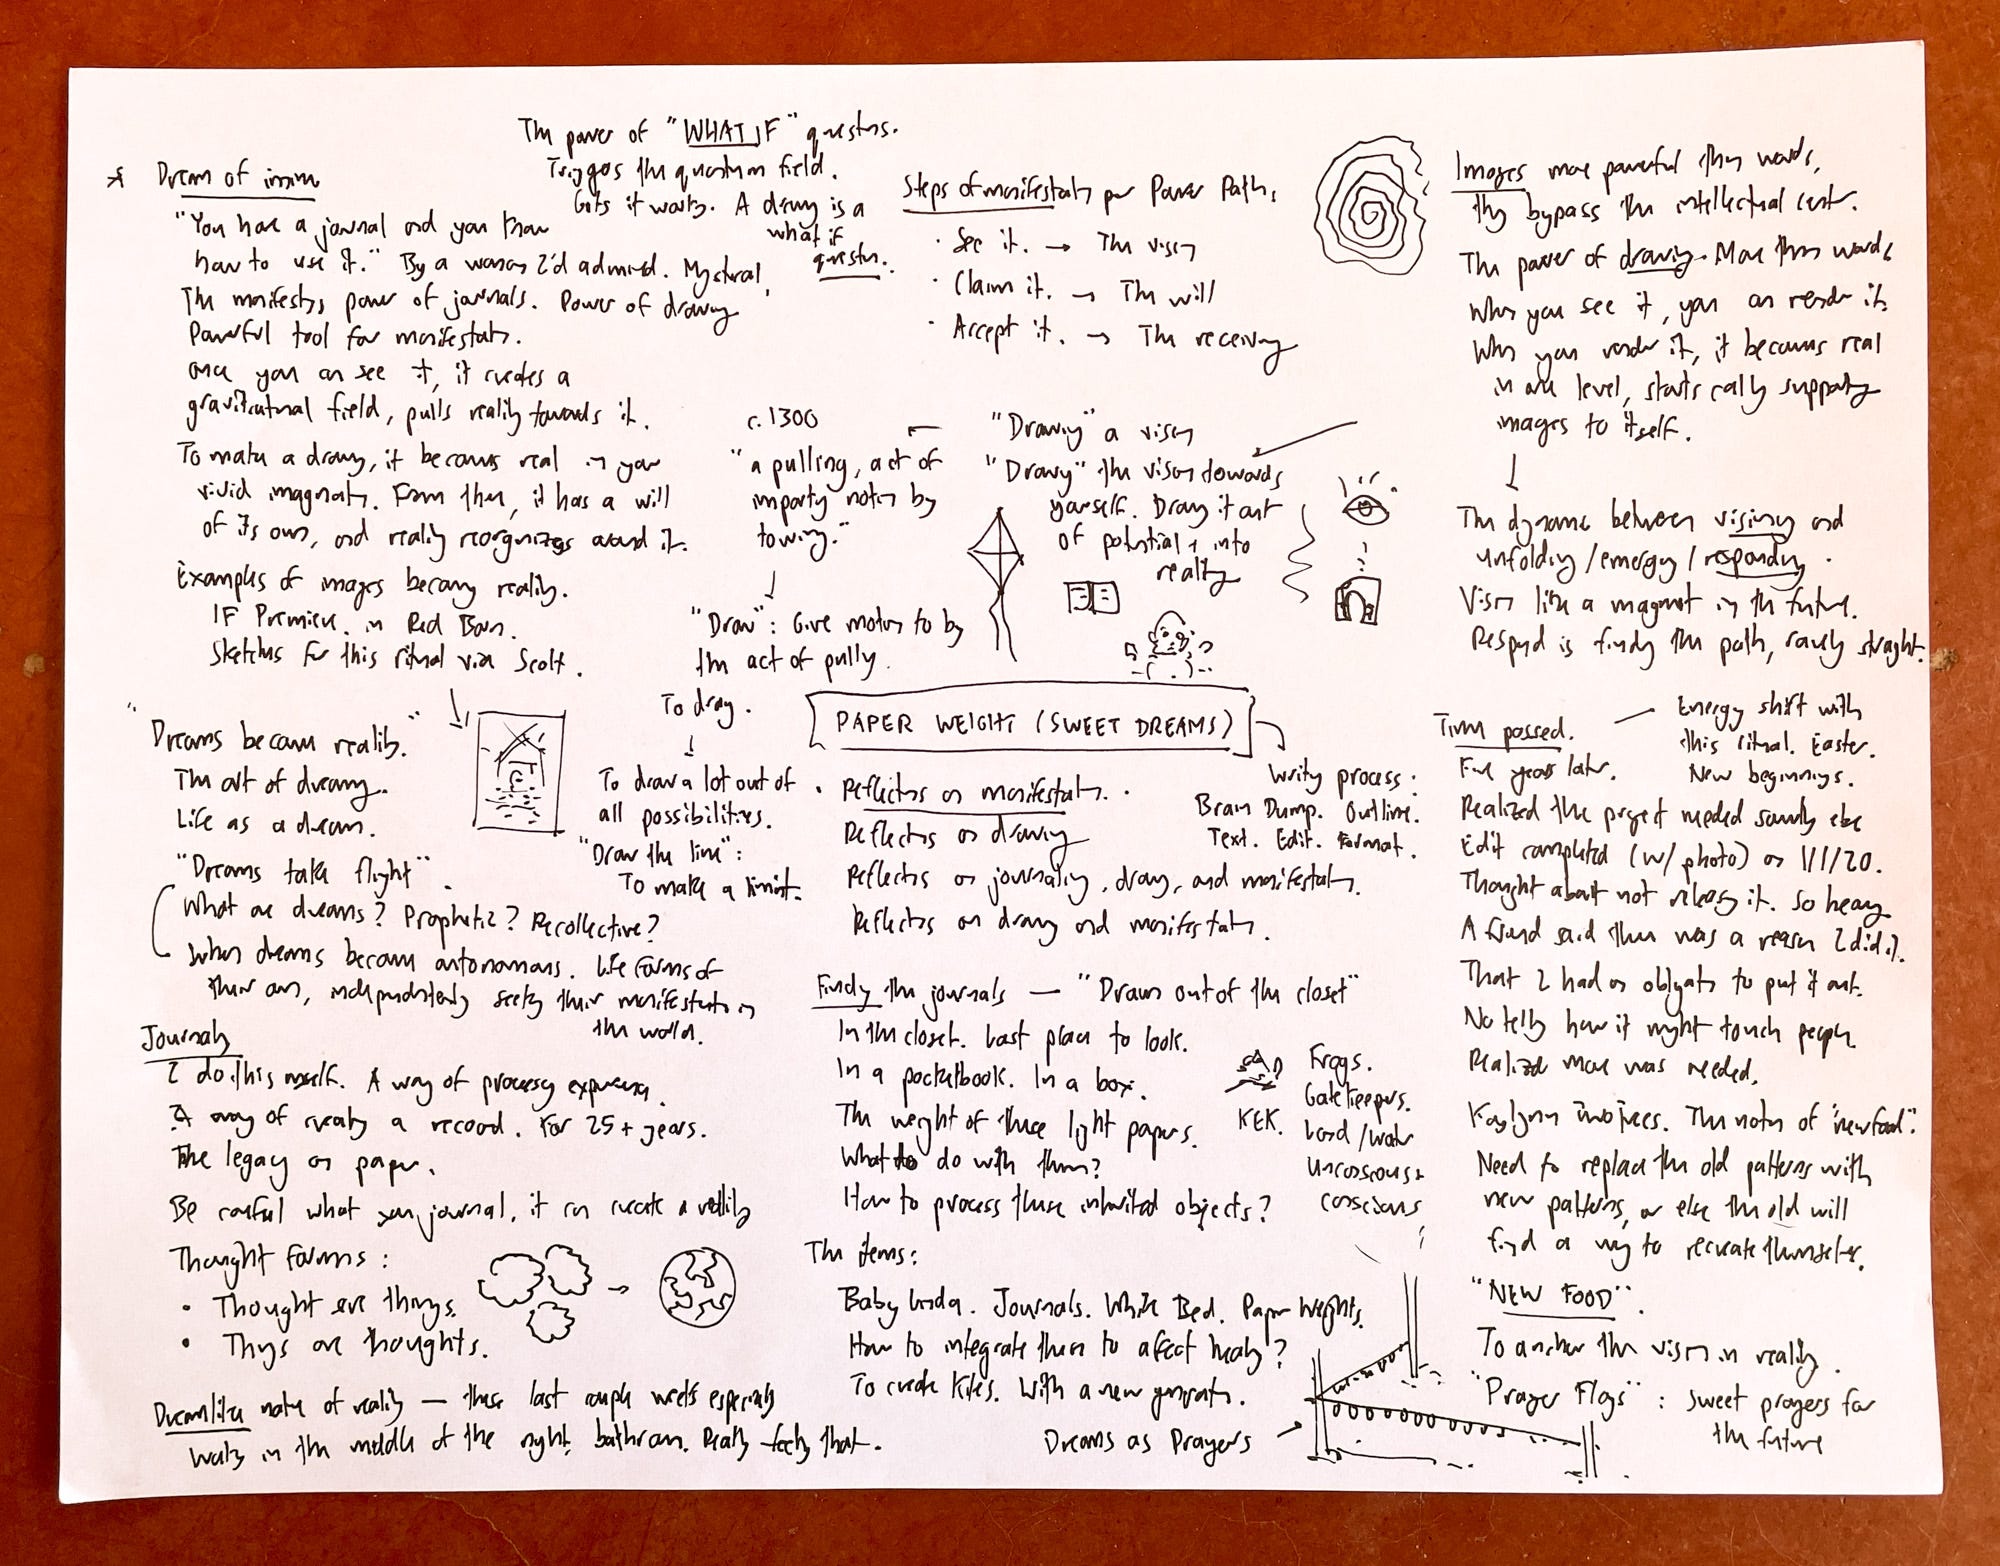 The power of "WHAT IF" questions.
Triggers the quantum field.
Gets it working. A drawing is a
what if
question.
* Dream of
"You have a journal and you know
how to use it." By a woman I'd admired. Mystical.
The manifesting power of journals. Power of drawing
Powerful tool for manifestation.
once you can see it, it creates a
gravitational field, pulls reality towards it.
To make a drawing, it becomes real in your
vivid imagination. From there, it has a will
of its own, and reality reorganizes around it.
Examples of images becoming reality.
IF Premiere in Red Barn.
Sketches for this ritual via Scott.
"Dreams become reality."
The art of dreaming.
Life as a dream.
"Dreams take flight".
What are dreams? Prophetic? Recollective?
When dreams become autonomous. Life forms of
their own, independently seeking their manifestation in
the world.
Journals
I do this myself. A way of processing experience.
A way of creating a record. For 25+ years.
The legacy on paper.
Be careful what you journal, it can create a reality
Thought forms:
• Thought are things.
• Things are thoughts.
Dreamlike nature of reality — these last couple weeks especially
Waking in the middle of the night, bathroom. Really feeling that.
Steps of manifestation per Power Path.
· See it. → The vision
· Claim it. → The will
· Accept it. → The receiving
c. 1300
"a pulling, act of
imparting motion by
towing."
"Draw": Give motion to by
the act of pulling.
To drag.
To draw a lot out of
all possibilities.
"Draw the line":
To make a limit.
"Drawing" a vision
"Drawing" the vision towards
yourself. Drawing it out
of potential + into
reality
PAPER WEIGHT (SWEET DREAMS)
Writing process:
Brain Dump. Outline.
Text. Edit. Format.
· Reflections on manifestation.
Reflections on drawing
Reflections on journaling, drawing, and manifestation.
Reflections on drawing and manifestation.
Finding the journals — "Drawn out of the closet"
In the closet. Last place to look.
In a pocketbook. In a box.
The weight of these light papers.
What to do with them?
How to process these inherited objects?
KEK.
Frogs.
Gatekeepers.
Land/Water
Unconscious +
conscious
The items:
Baby Linda. Journals. White Bed. Paper Weights.
How to integrate them to affect healing?
To create Kites. With a new generation.
Dreams as Prayers
Images more powerful than words,
they bypass the intellectual center.
The power of drawing. More than words
When you see it, you can render it.
When you render it, it becomes real
in one level, starts calling supporting
images to itself.
The dynamic between visioning and
unfolding/emerging/responding.
Vision like a magnet in the future.
Respond is finding the path, rarely straight.
Time passed.
Five years later.
Energy shift with
this ritual. Easter.
New beginnings.
Realized the project needed something else
Edit completed (w/ photo) on 1/1/20.
Thought about not releasing it. So heavy
A friend said there was a reason I did it.
That I had an obligation to put it out.
No telling how it might touch people.
Realized more was needed.
Kaylynn TwoTrees. The notion of "new food".
Need to replace the old patterns with
new patterns, or else the old will
find a way to recreate themselves.
"NEW FOOD".
To anchor the vision in reality.
"Prayer Flags": Sweet prayers for
the future